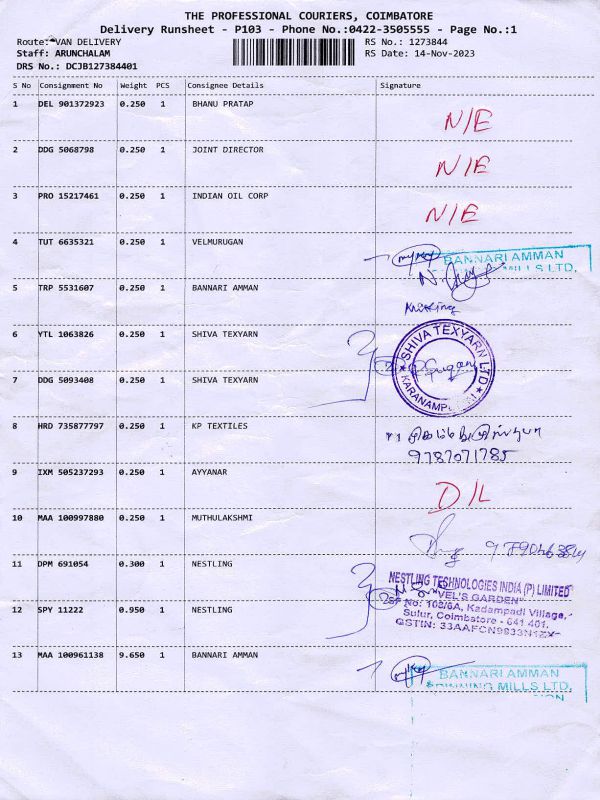 THE PROFESSIONAL COURIERS, COIMBATORE
Delivery Runsheet - P103 - Phone No.:0422-3505555 - Page No.:1
Route: VAN DELIVERY RS No.: 1273844
Staff: ARUNCHALAM RS Date: 14-Nov-2023
DRS No.: DCJB127384401
S No Consignment No Weight PCS Consignee Details Signature
1 DEL 901372923 0.250 1 BHANU PRATAP N/E
2 DDG 5068798 0.250 1 JOINT DIRECTOR N/E
3 PRO 15217461 0.250 1 INDIAN OIL CORP N/E
4 TUT 6635321 0.250 1 VELMURUGAN
BANNARI AMMAN
MILLS LTD.
5 TRP 5531607 0.250 1 BANNARI AMMAN
6 YTL 1063826 0.250 1 SHIVA TEXYARN
SHIVA TEXYARN LTD
KARANAMP
7 DDG 5093408 0.250 1 SHIVA TEXYARN
8 HRD 735877797 0.250 1 KP TEXTILES
9787071785
9 IXM 505237293 0.250 1 AYYANAR D/L
10 MAA 100997880 0.250 1 MUTHULAKSHMI
11 DPM 691054 0.300 1 NESTLING
NESTLING TECHNOLOGIES INDIA (P) LIMITED
"VEL'S GARDEN"
No: 102/6A, Kadampadi Village,
12 SPY 11222 0.950 1 NESTLING
Sulur, Coimbatore - 641 401.
GSTIN:
13 MAA 100961138 9.650 1 BANNARI AMMAN
BANNARI AMMAN
SPINNING MILLS LTD.